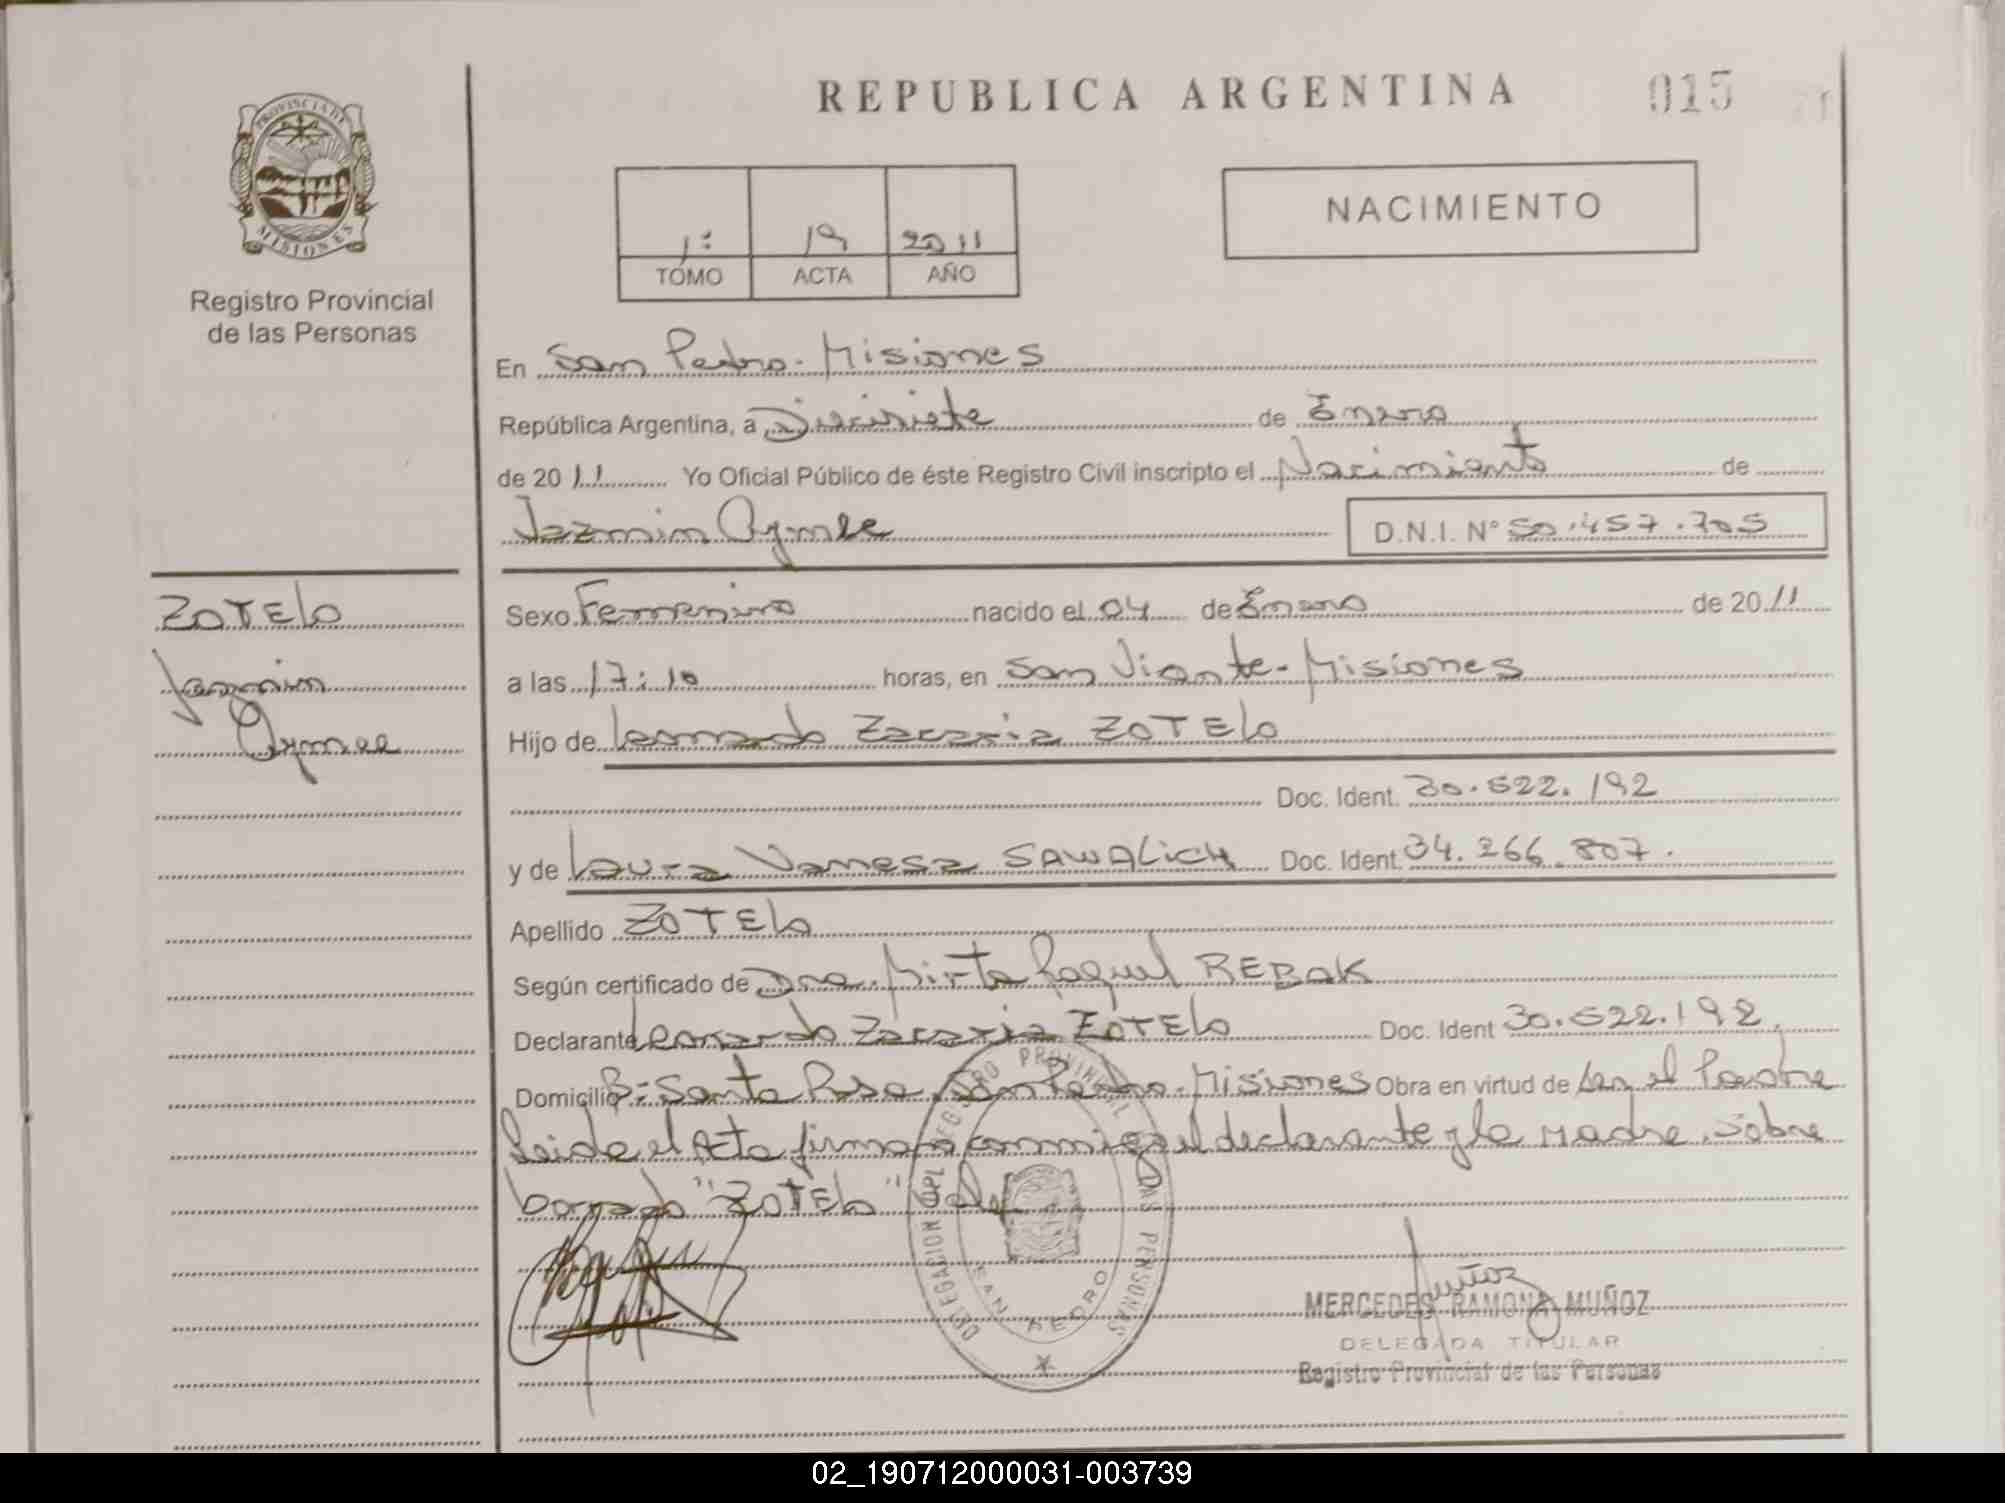 REPUBLICA ARGENTINA
015
PROVINCIA DE
MISIONES
Registro Provincial
de las Personas
1º 19 2011
TOMO ACTA AÑO
NACIMIENTO
En San Pedro - Misiones
República Argentina, a Diecisiete de Enero
de 2011 Yo Oficial Público de éste Registro Civil inscripto el Nacimiento de
Jazmin Aymee D.N.I. Nº 50.457.705
ZOTELO
Jazmin
Aymee
Sexo Femenino nacido el 04 de Enero de 2011
a las 17:10 horas, en San Vicente - Misiones
Hijo de Leonardo Zacaria ZOTELO
Doc. Ident. 30.522.192
y de Laura Vanesa SAWALICH Doc. Ident. 34.266.807.
Apellido ZOTELO
Según certificado de Dra. Mirta Raquel REBAK
Declarante Leonardo Zacaria ZOTELO Doc. Ident 30.522.192,
Domicilio Bº Santa Rosa, San Pedro - Misiones Obra en virtud de ser el Padre
Leida el Acta firman conmigo el declarante y la Madre. Sobre
borrado "ZOTELO" Vale
DELEGACION DEL REGISTRO PROVINCIAL DE LAS PERSONAS
SAN PEDRO
Muñoz
MERCEDES RAMONA MUÑOZ
DELEGADA TITULAR
Registro Provincial de las Personas
02_190712000031-003739